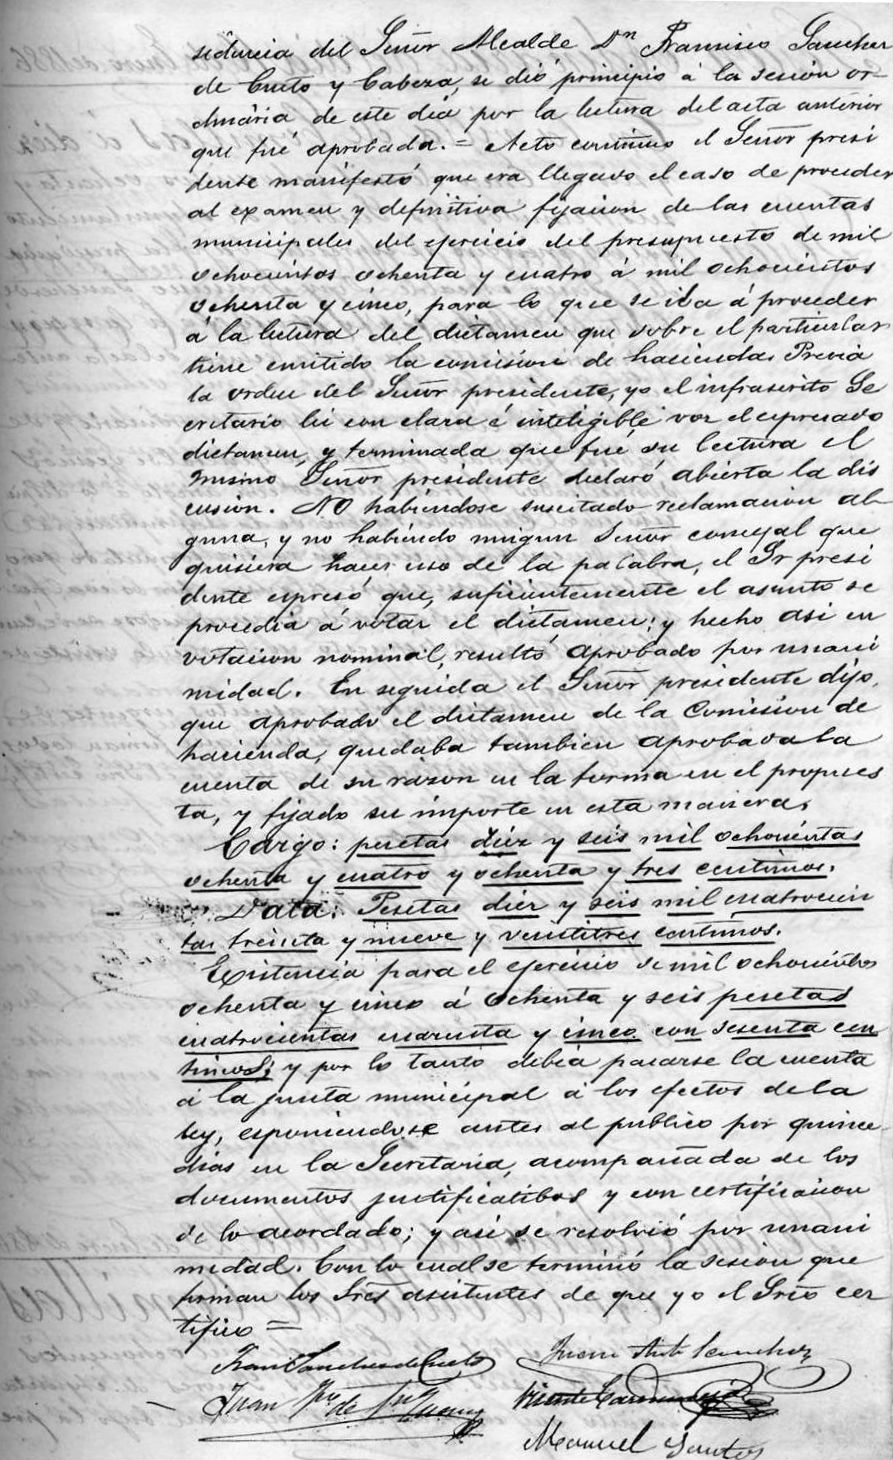 sidencia del Señor Alcalde Dn Francisco Sanchez
de Cueto y Cabeza, se dió principio á la sesion or-
dinária de este dia por la lectura del acta anterior
que fué aprobada. = Acto contínuo el Señor presi
dente manifestó que era llegado el caso de proceder
al examen y definitiva fijacion de las cuentas
municipales del ejercicio del presupuesto de mil
ochocientos ochenta y cuatro á mil ochocientos
ochenta y cinco, para lo que se iba á proceder
á la lectura del dictamen que sobre el particular
tiene emitido la comision de hacienda. Prévia
la orden del Señor presidente, yo el infrascrito Se
cretario lei con clara é inteligible voz el espresado
dictamen, y terminada que fué su lectura el
mismo Señor presidente declaró abierta la dis
cusion. No habiéndose suscitado reclamacion al-
guna, y no habiendo ningun Señor concejal que
quisiera hacer uso de la palabra, el Sr presi
dente espresó que, suficientemente el asunto se
procedia á votar el dictamen; y hecho asi en
votacion nominal, resultó aprobado por unani
midad. En seguida el Señor presidente dijo,
que aprobado el dictamen de la Comision de
hacienda, quedaba tambien aprobada la
cuenta de su razon en la forma en el propues
ta, y fijado su importe en esta manera.
Cargo: pesetas diez y seis mil ochocientas
ochenta y cuatro y ochenta y tres centimos.
Data: Pesetas diez y seis mil cuatrocien
tas treinta y nueve y veintitres centimos.
Existencia para el ejercicio de mil ochocientos
ochenta y cinco á ochenta y seis pesetas
cuatrocientas cuarenta y cinco con sesenta cen
timos; y por lo tanto debia pasarse la cuenta
á la junta municipal á los efectos de la
ley, esponiendose antes al publico por quince
dias en la Secretaria, acompañada de los
documentos justificatibos y con certificacion
de lo acordado; y asi se resolvió por unani
midad. Con lo cual se terminó la sesion que
firman los Sres asistentes de que yo el Srio cer
tifico =
Fran Sanchez de Cueto Juan Anto Sanchez
Juan de Vicente
Manuel Santos